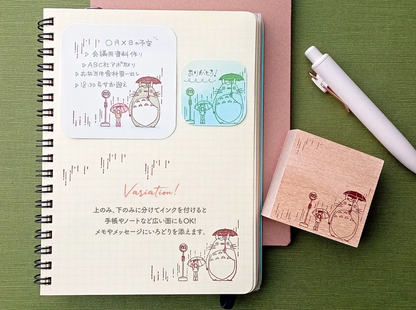 〇月×日の予定
▷会議用資料作り
▷ABC社アポ取り
ありがとう♪
Variation!
上のみ、下のみに分けてインクを付けると
手帳やノートなど広い面にもOK!
メモやメッセージにいろどりを添えます。